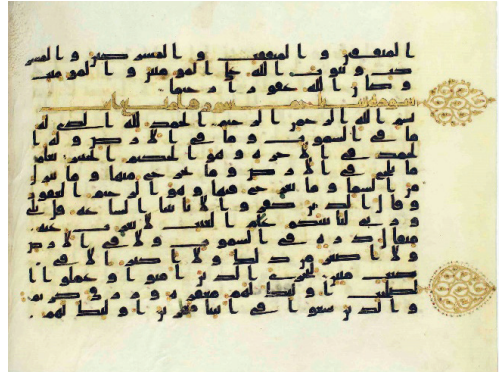 المنفقين و المنفقت و المشركين و المشر
كت و يتوب الله على المومنين و المومنت
و كان الله غفورا رحيما
سورة سبا
بسم الله الرحمن الرحيم الحمد لله الذي له
ما في السموت و ما في الارض و له ا
لحمد في الاخرة و هو الحكيم الخبير يعلم
ما يلج في الارض و ما يخرج منها و ما ينزل
من السما و ما يعرج فيها و هو الرحيم الغفور
و قال الذين كفروا لا تاتينا الساعة قل بلى
و ربي لتاتينكم علم الغيب لا يعزب عنه
مثقال ذرة في السموت و لا في الارض
و لا اصغر من ذلك و لا اكبر الا في ك
تب مبين ليجزي الذين امنوا و عملوا ا
لصلحت اوليك لهم مغفرة و رزق كريم
و الذين سعو في ايتنا معجزين اوليك لهم